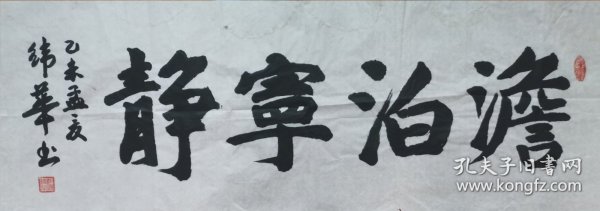 澹泊寧静
乙未孟夏
緯華书
孔夫子旧书网
www.kongfz.com